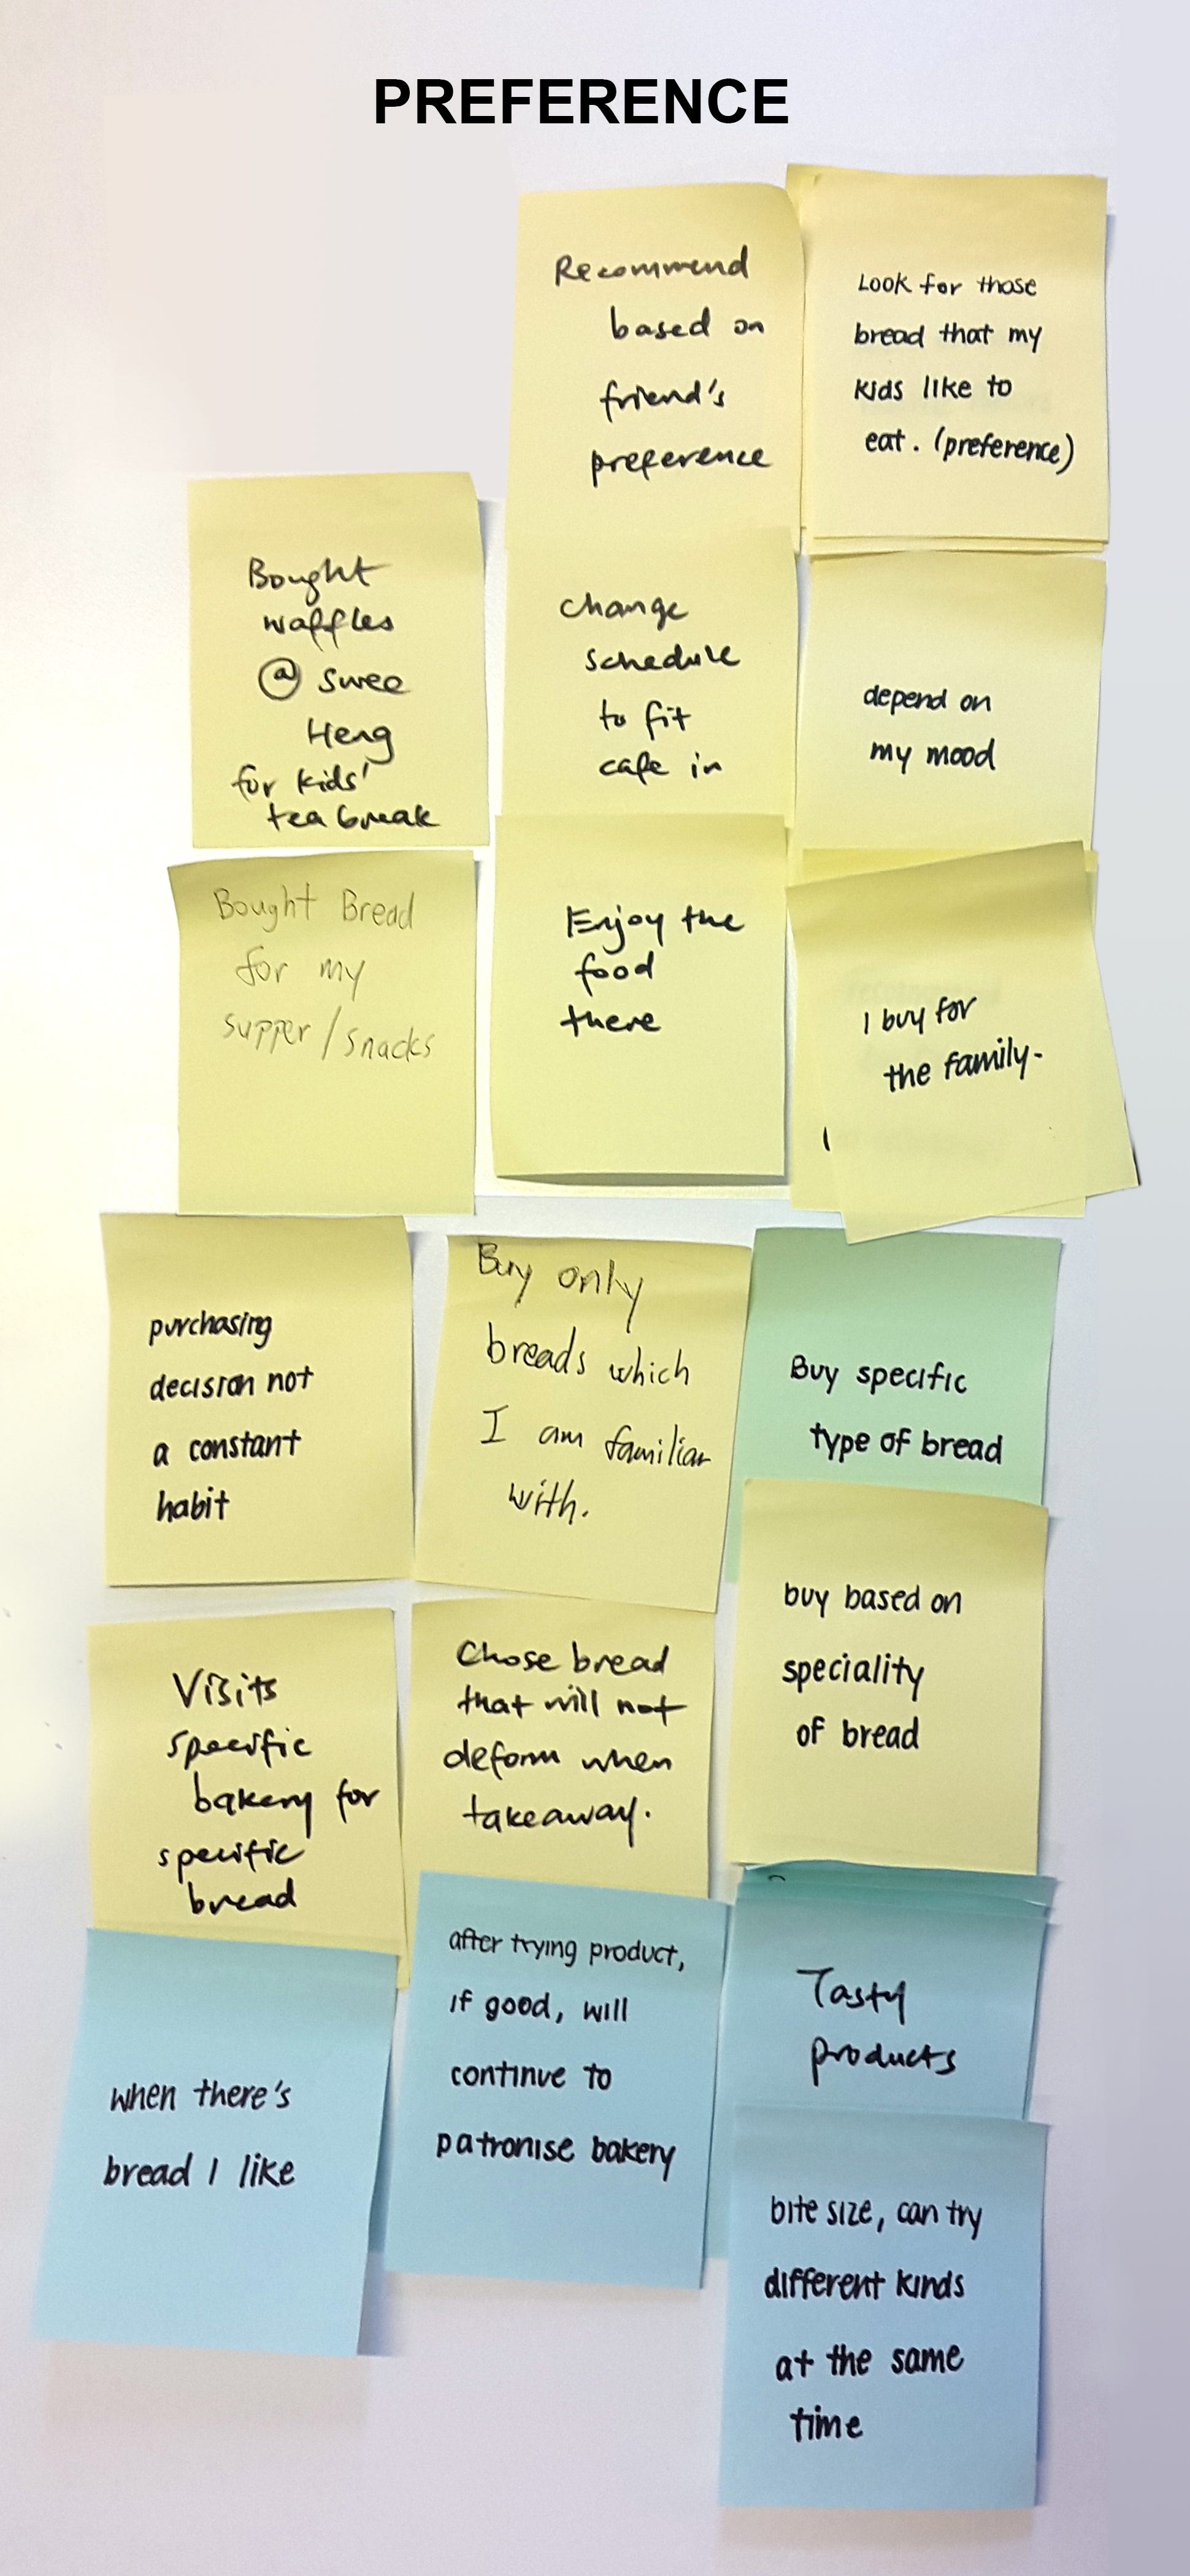 PREFERENCE
Recommend
based on
friend's
preference
Look for those
bread that my
kids like to
eat. (preference)
Bought
waffles
@ Swee
Heng
for kids'
tea break
change
schedule
to fit
cafe in
depend on
my mood
Bought Bread
for my
supper/snacks
Enjoy the
food
there
I buy for
the family.
purchasing
decision not
a constant
habit
Buy only
breads which
I am familiar
with.
Buy specific
type of bread
Visits
specific
bakery for
specific
bread
Chose bread
that will not
deform when
takeaway.
buy based on
speciality
of bread
when there's
bread I like
after trying product,
if good, will
continue to
patronise bakery
Tasty
products
bite size, can try
different kinds
at the same
time